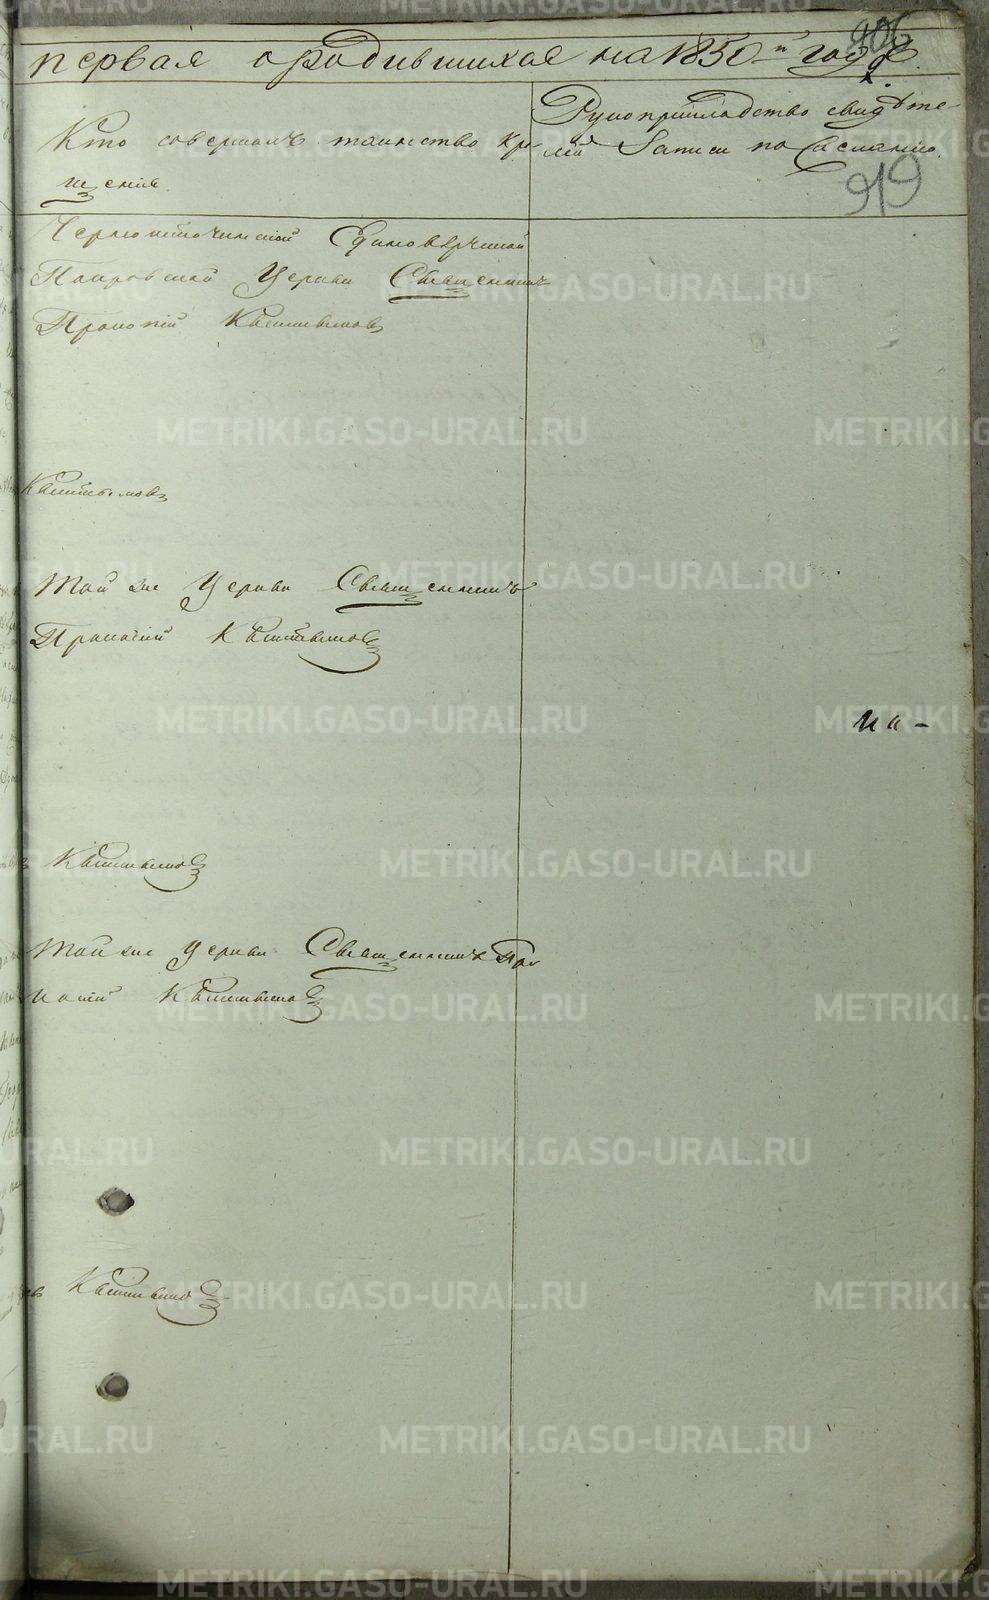 906
первая о родившихся на 1850 й годъ
Кто совершалъ таинство кре
щенія.
Рукоприкладство свидѣте-
лей Записи по желанію.
919
Черноисточинской Единовѣрческой
Покровской Церкви Священникъ
Прокопій Кыштымовъ
Кыштымовъ
Той же Церкви Священникъ
Прокопій Кыштымовъ
на -
Кыштымовъ
Той же Церкви Священникъ Про
копій Кыштымовъ
Кыштымовъ
METRIKI.GASO-URAL.RU